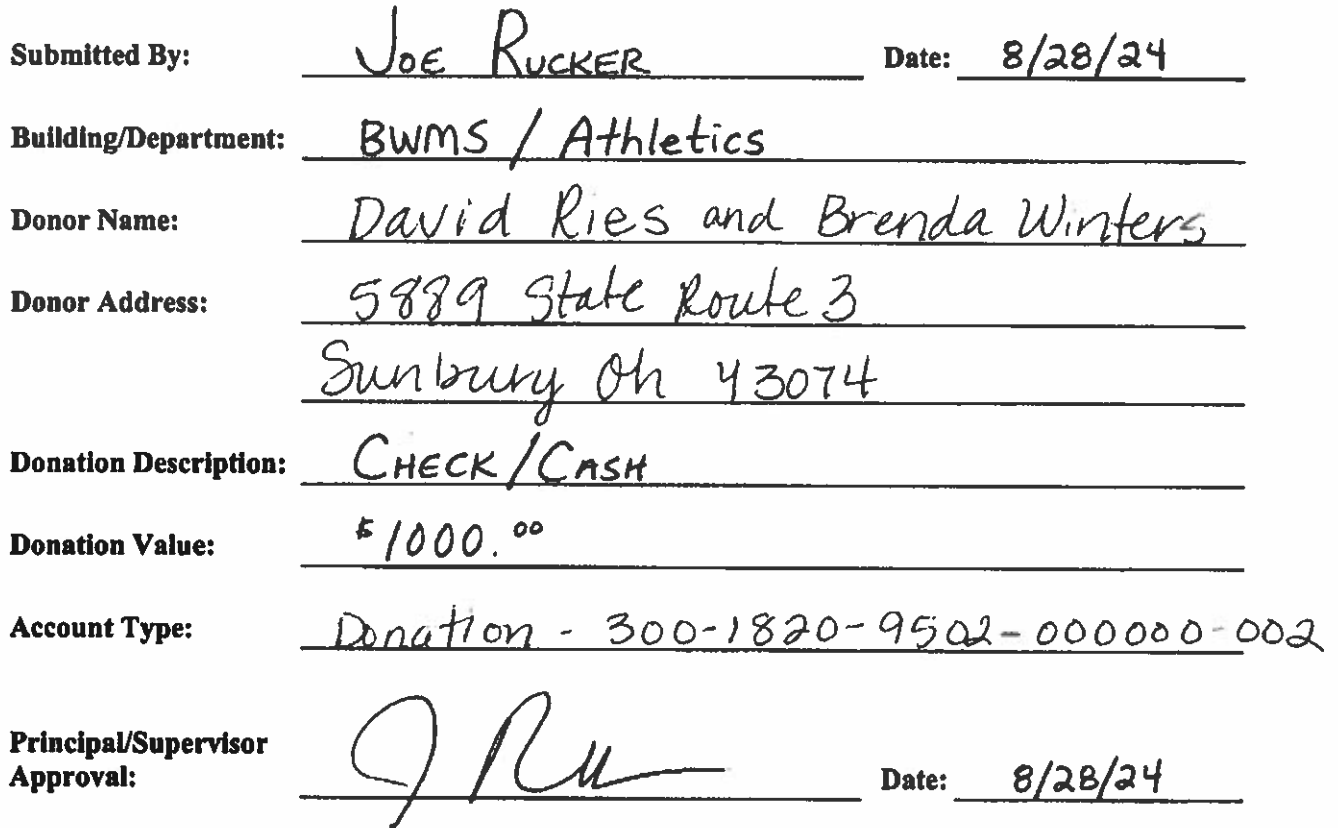 Submitted By: JOE RUCKER Date: 8/28/24
Building/Department: BWMS / Athletics
Donor Name: David Ries and Brenda Winters
Donor Address: 5889 State Route 3
Sunbury Oh 43074
Donation Description: CHECK/CASH
Donation Value: $1000.00
Account Type: Donation - 300-1820-9502-000000-002
Principal/Supervisor
Approval: Date: 8/28/24